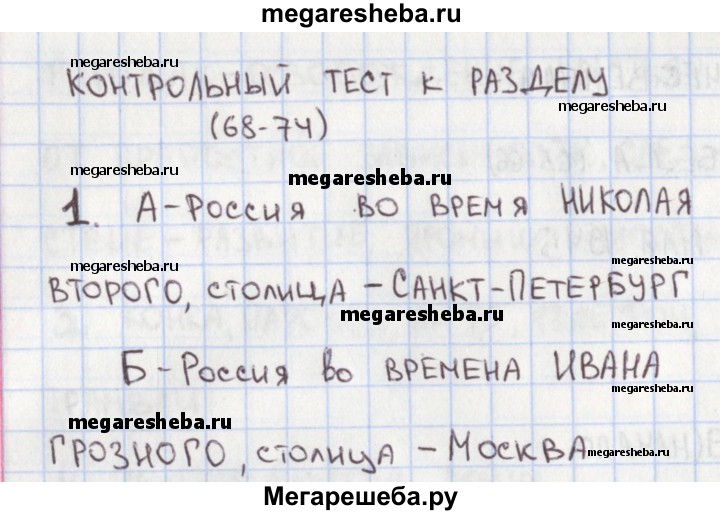 megaresheba.ru
megaresheba.ru
КОНТРОЛЬНЫЙ ТЕСТ К РАЗДЕЛУ
megaresheba.ru
(68-74)
megaresheba.ru
megaresheba.ru
1. А-РОССИЯ ВО ВРЕМЯ НИКОЛАЯ
megaresheba.ru
megaresheba.ru
ВТОРОГО, СТОЛИЦА - САНКТ-ПЕТЕРБУРГ
megaresheba.ru
megaresheba.ru
Б-РОССИЯ ВО ВРЕМЕНА ИВАНА
megaresheba.ru
megaresheba.ru
ГРОЗНОГО, СТОЛИЦА - МОСКВА
megaresheba.ru
Мегарешеба.ру